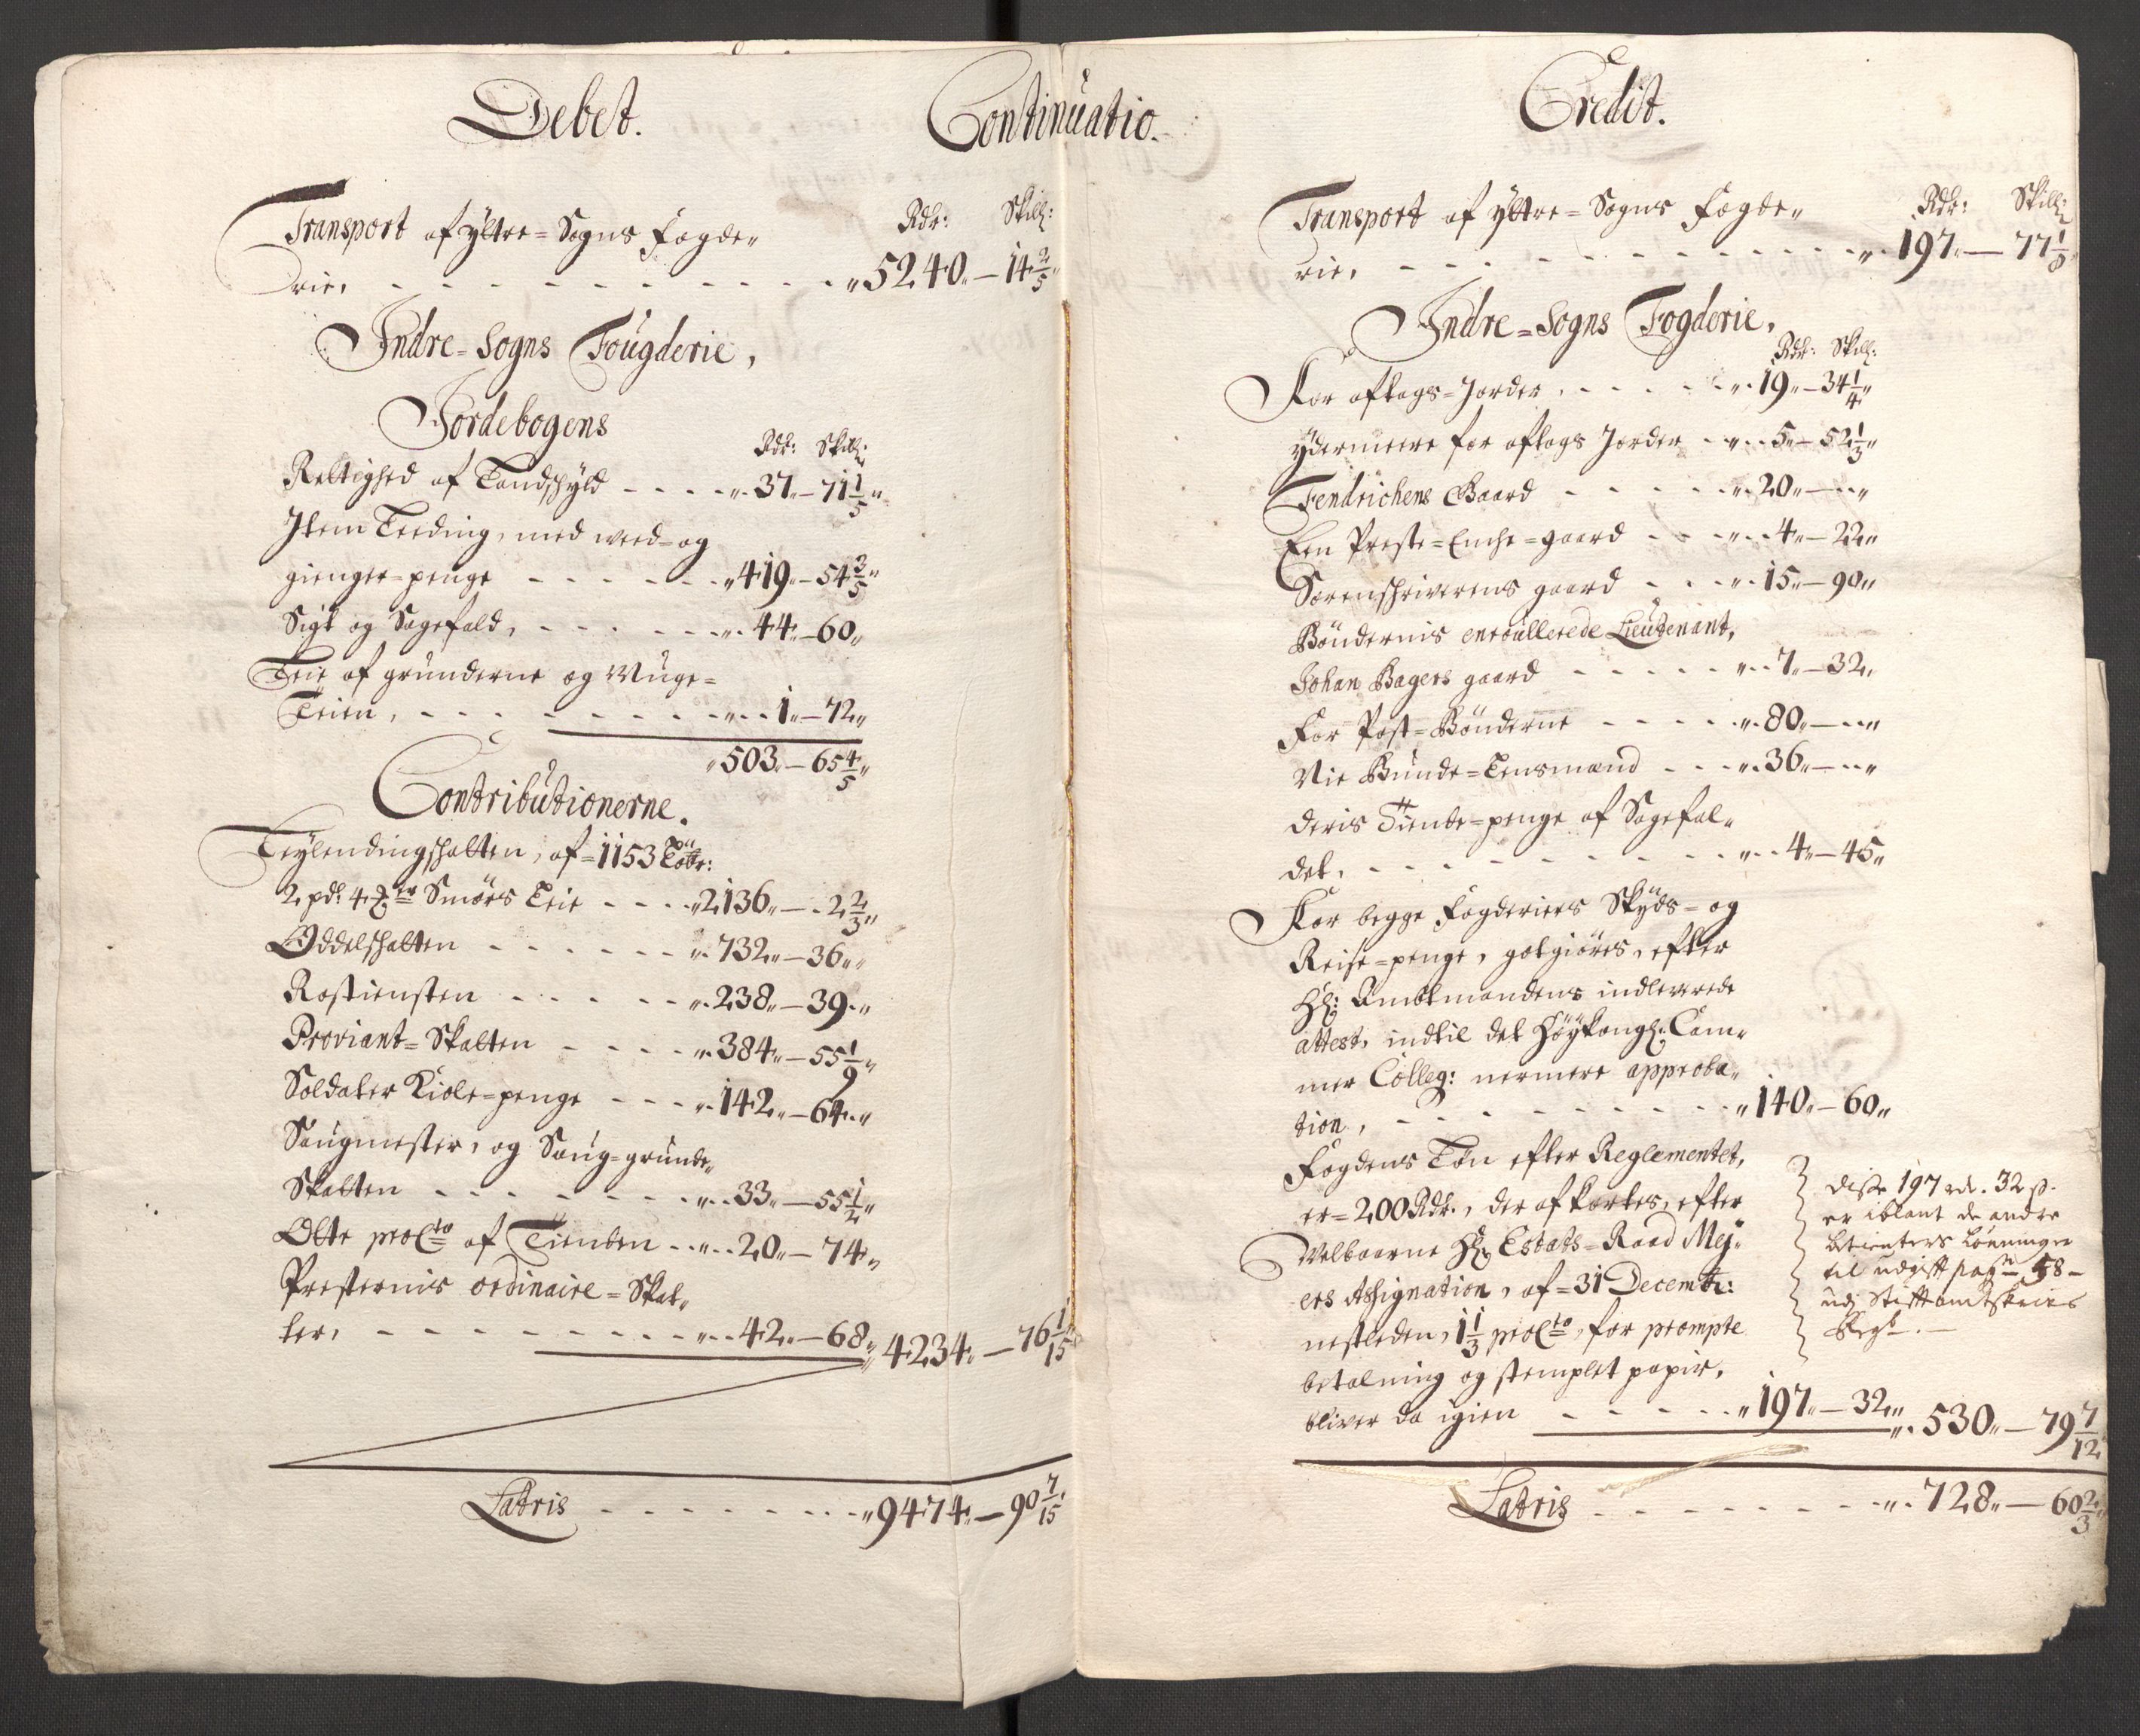 Debet.
Continuatio.
Transport af Ÿttre=Sogns Fogde„
Rdr: Skill:
rie, - - - - - - - - - - „5240„—14 2/5
Indre=Sogns Fougderie,
Jordebogens
Rdr: Skill:
Rettighed af Landschÿld - - - - „37„—71 1/5„
Item Leeding, med weed= og
giengier=penge - - - - - - „419„—54 3/5„
Sigt og Sagefald, - - - - - - „44„—60„
Leie af grunderne og
Leien, - - - - - - - - - „1„—72„
„503„—65 4/5„
Contributionerne.
Leÿlendingschatten, af=1153
2 pd: 4 Smørs Leie - - - - „2136„—2 2/3„
Oddelschatten - - - - - - „732„—36„
Rostiensten - - - - - „238„—39„
Proviant=Skatten - - - - „384„—55 1/9„
Soldater Kiole=penge - - - „142„—64„
Saugmester, og Saug=grunde„
Skatten - - - - - - - „33„—55 1/2„
Otte proCto af Tienden - - „20„—74„
Presternis ordinaire=Skat„
ter, - - - - - - - - - „42„—68„ „4234„—76 1/15
Latris - - - - - - - - „9474„—90 7/15
Credit.
Transport af Ÿttre=Sogns Fogde„
Rdr: Skill:
rie, - - - - - - - - - - - „197„—77 1/
Indre=Sogns Fogderie,
Rdr: Skill:
For aftags=Jorder, - - - - - „19„—34 1/4„
ÿdermeere for aftags Jorder - „5„—52 1/3„
Fendrichens Gaard - - - - - „20„—„
Een Preste=Enche=gaard - - - „4„—22„
Sorenschriverens gaard - - - „15„—90„
Bøndernis enroullerede Lieutenant,
Johan Bagers gaard - - - - - „7„—32„
For Post=Bønderne - - - - - „80„—„
Nie Bunde=Lensmænd - - - „36„—„
deris Tiende=penge af Sagefal„
det, - - - - - - - - - „4„—45„
For begge Fogderiers Skÿds= og
Reise=penge, gotgiøres, efter
Hr: Ambtmandens indleverede
attest, indtil det Høÿkongl: Cam„
mer Colleg: nermere approba„
tion, - - - - - - - - - „140„—60„
Fogdens Løn efter Reglementet,
er=200 Rdr:, der afkortes, efter
Welbaarne Hr. Estats=Raad Meÿ„
ers Assignation, af=31 Decembr:
nestleden, 1 1/3 proCto, for prompte
betalning og stemplet papir,
bliver da igien - - - - - „197„—32„ „530„—79 7/12
disse 197 rdr. 32 s.
er iblant de andre
betienters lønninger
til udgift pag: 58 –
udj Stiftamtskrivers
Regsk.
Latris - - - - - - - - „728„—60 2/3„